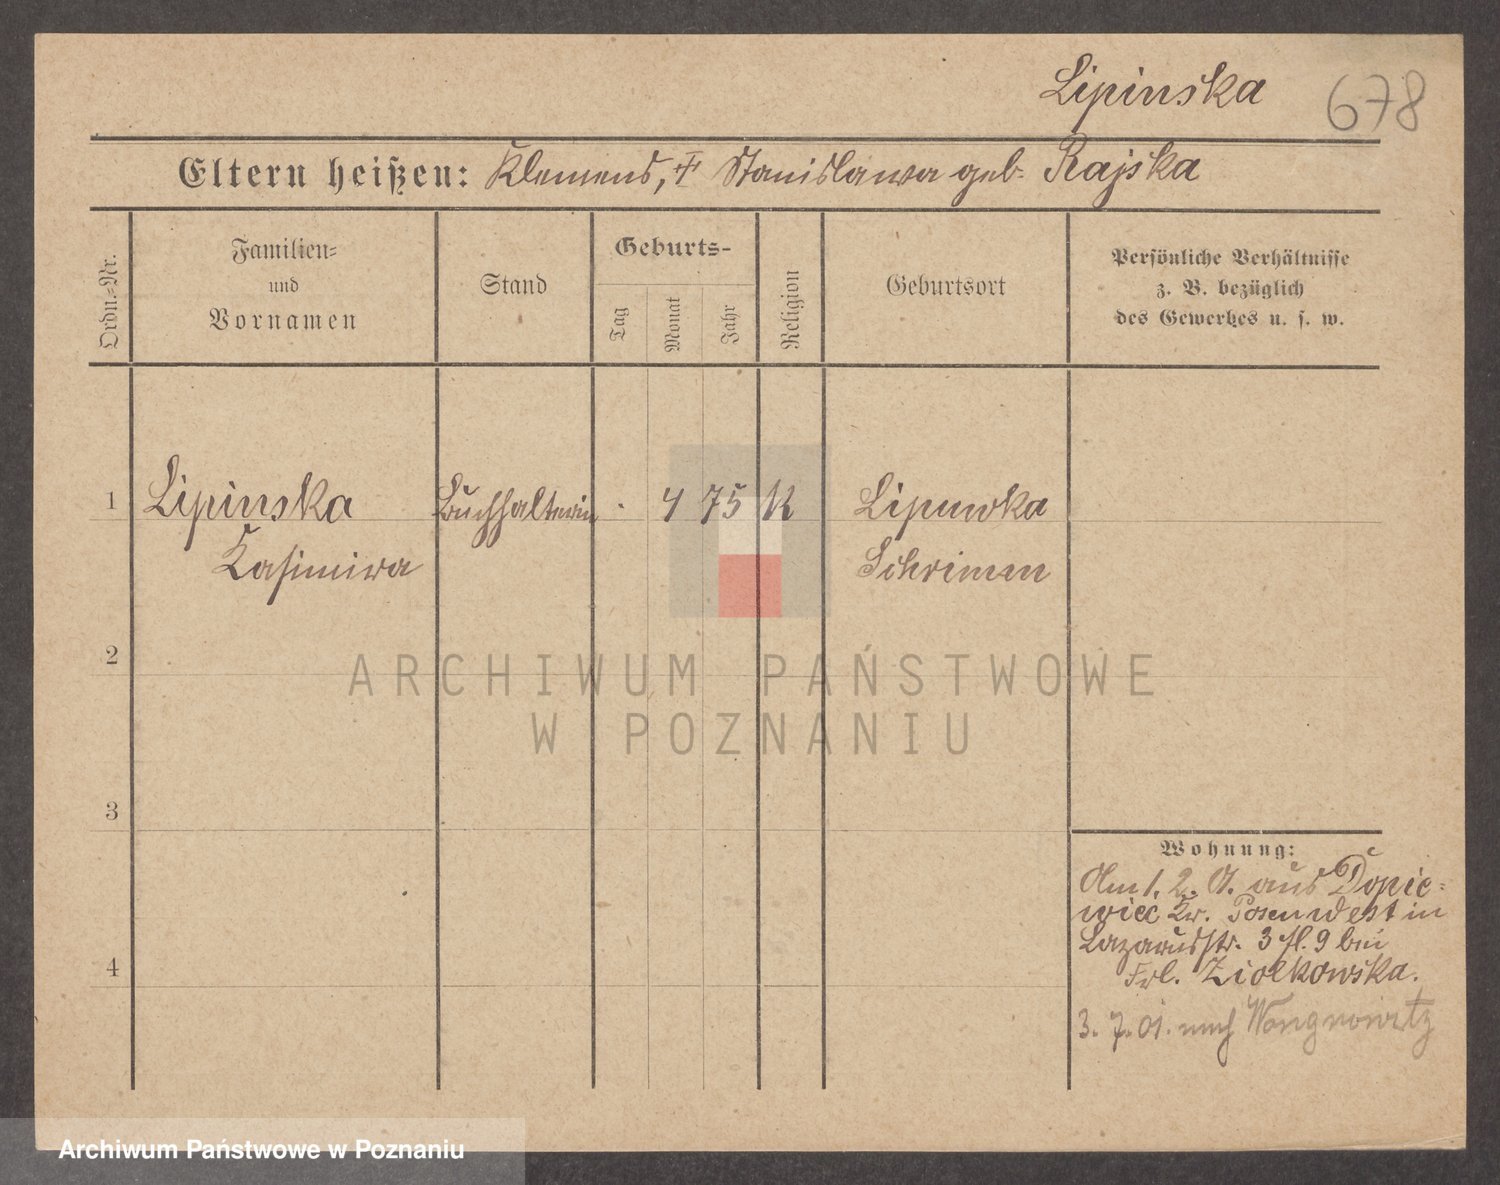 Lipinska
678
Eltern heißen: Klemens, † Stanislawa geb. Rajska
Ordn.-Nr.
Familien-
und
Vornamen
Stand
Geburts-
Tag
Monat
Jahr
Religion
Geburtsort
Persönliche Verhältnisse
z. B. bezüglich
des Gewerbes u. s. w.
1
Lipinska
Buchhalterin
4
75
K
Lipuwka
Kasimira
Schrimm
2
3
4
Wohnung:
Am 1. 2. 01. aus Dopie-
wiec Kr. Posen West in
Lazarusstr. 3 fl. 9 bei
Frl. Ziolkowska.
3. 7. 01. nach Wongrowitz
ARCHIWUM PAŃSTWOWE
W POZNANIU
Archiwum Państwowe w Poznaniu